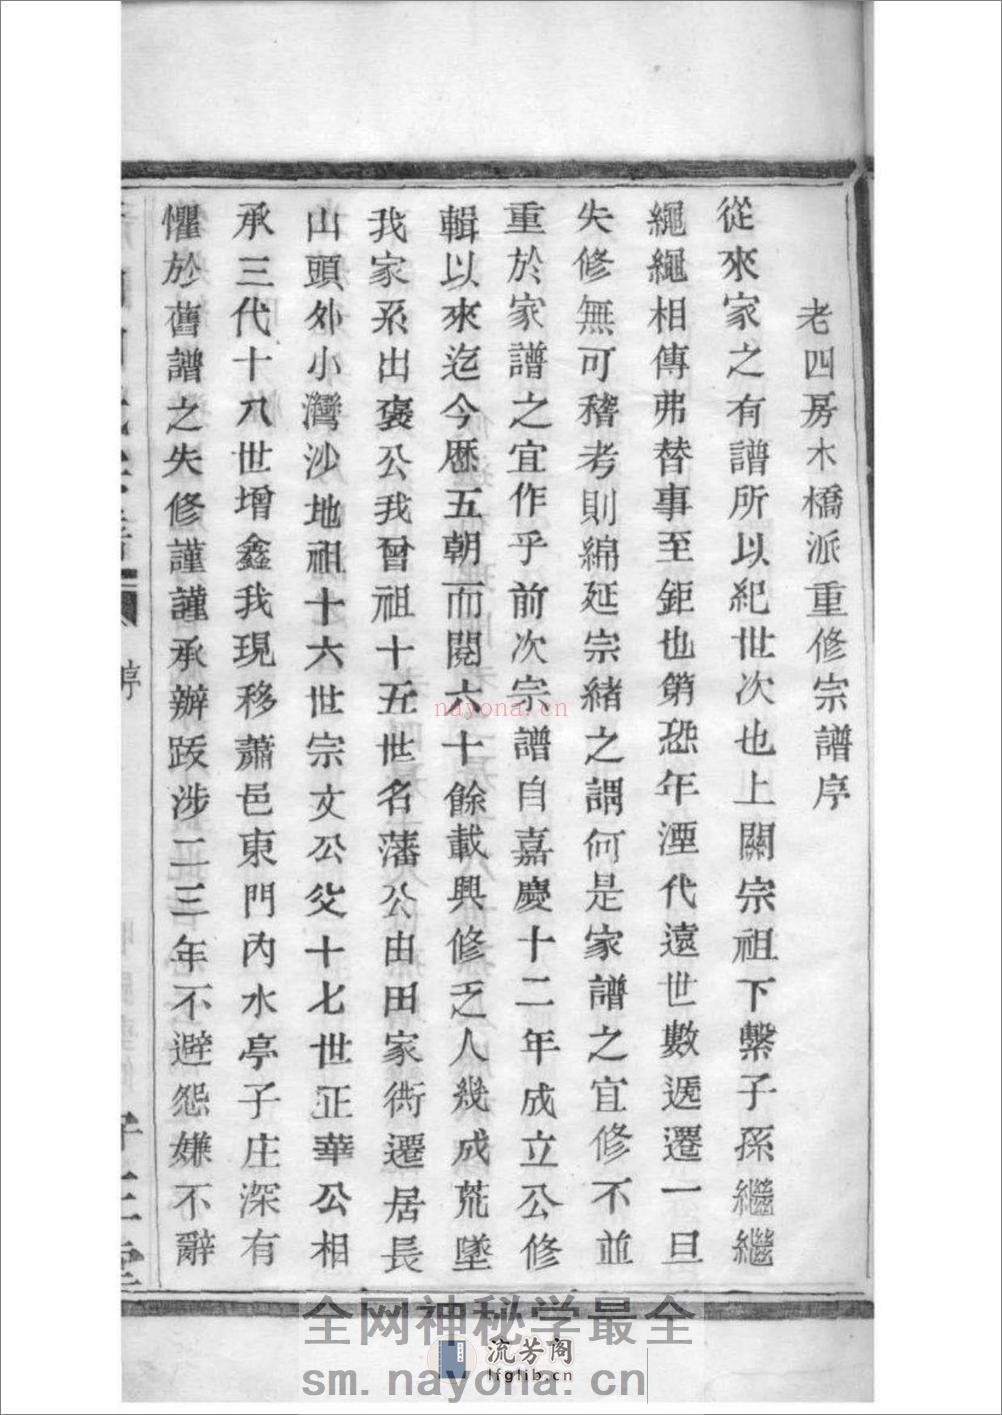 老四房木橋派重修宗譜序
從來家之有譜所以紀世次也上關宗祖下繫子孫繼繼
繩繩相傳弗替事至鉅也第恐年湮代遠世數遞遷一旦
失修無可稽考則綿延宗緒之謂何是家譜之宜修不並
重於家譜之宜作乎前次宗譜自嘉慶十二年成立公修
輯以來迄今歷五朝而閱六十餘載興修乏人幾成荒墜
我家系出褒公我曾祖十五世名藩公由田家衖遷居長
山頭外小灣沙地祖十六世宗文公父十七世正華公相
承三代十八世增鑫我現移蕭邑東門內水亭子庄深有
懼於舊譜之失修謹謹承辦跋涉二三年不避怨嫌不辭
序
nayona.cn
全网神秘学最全
流芳阁
lfglib.cn
sm.nayona.cn